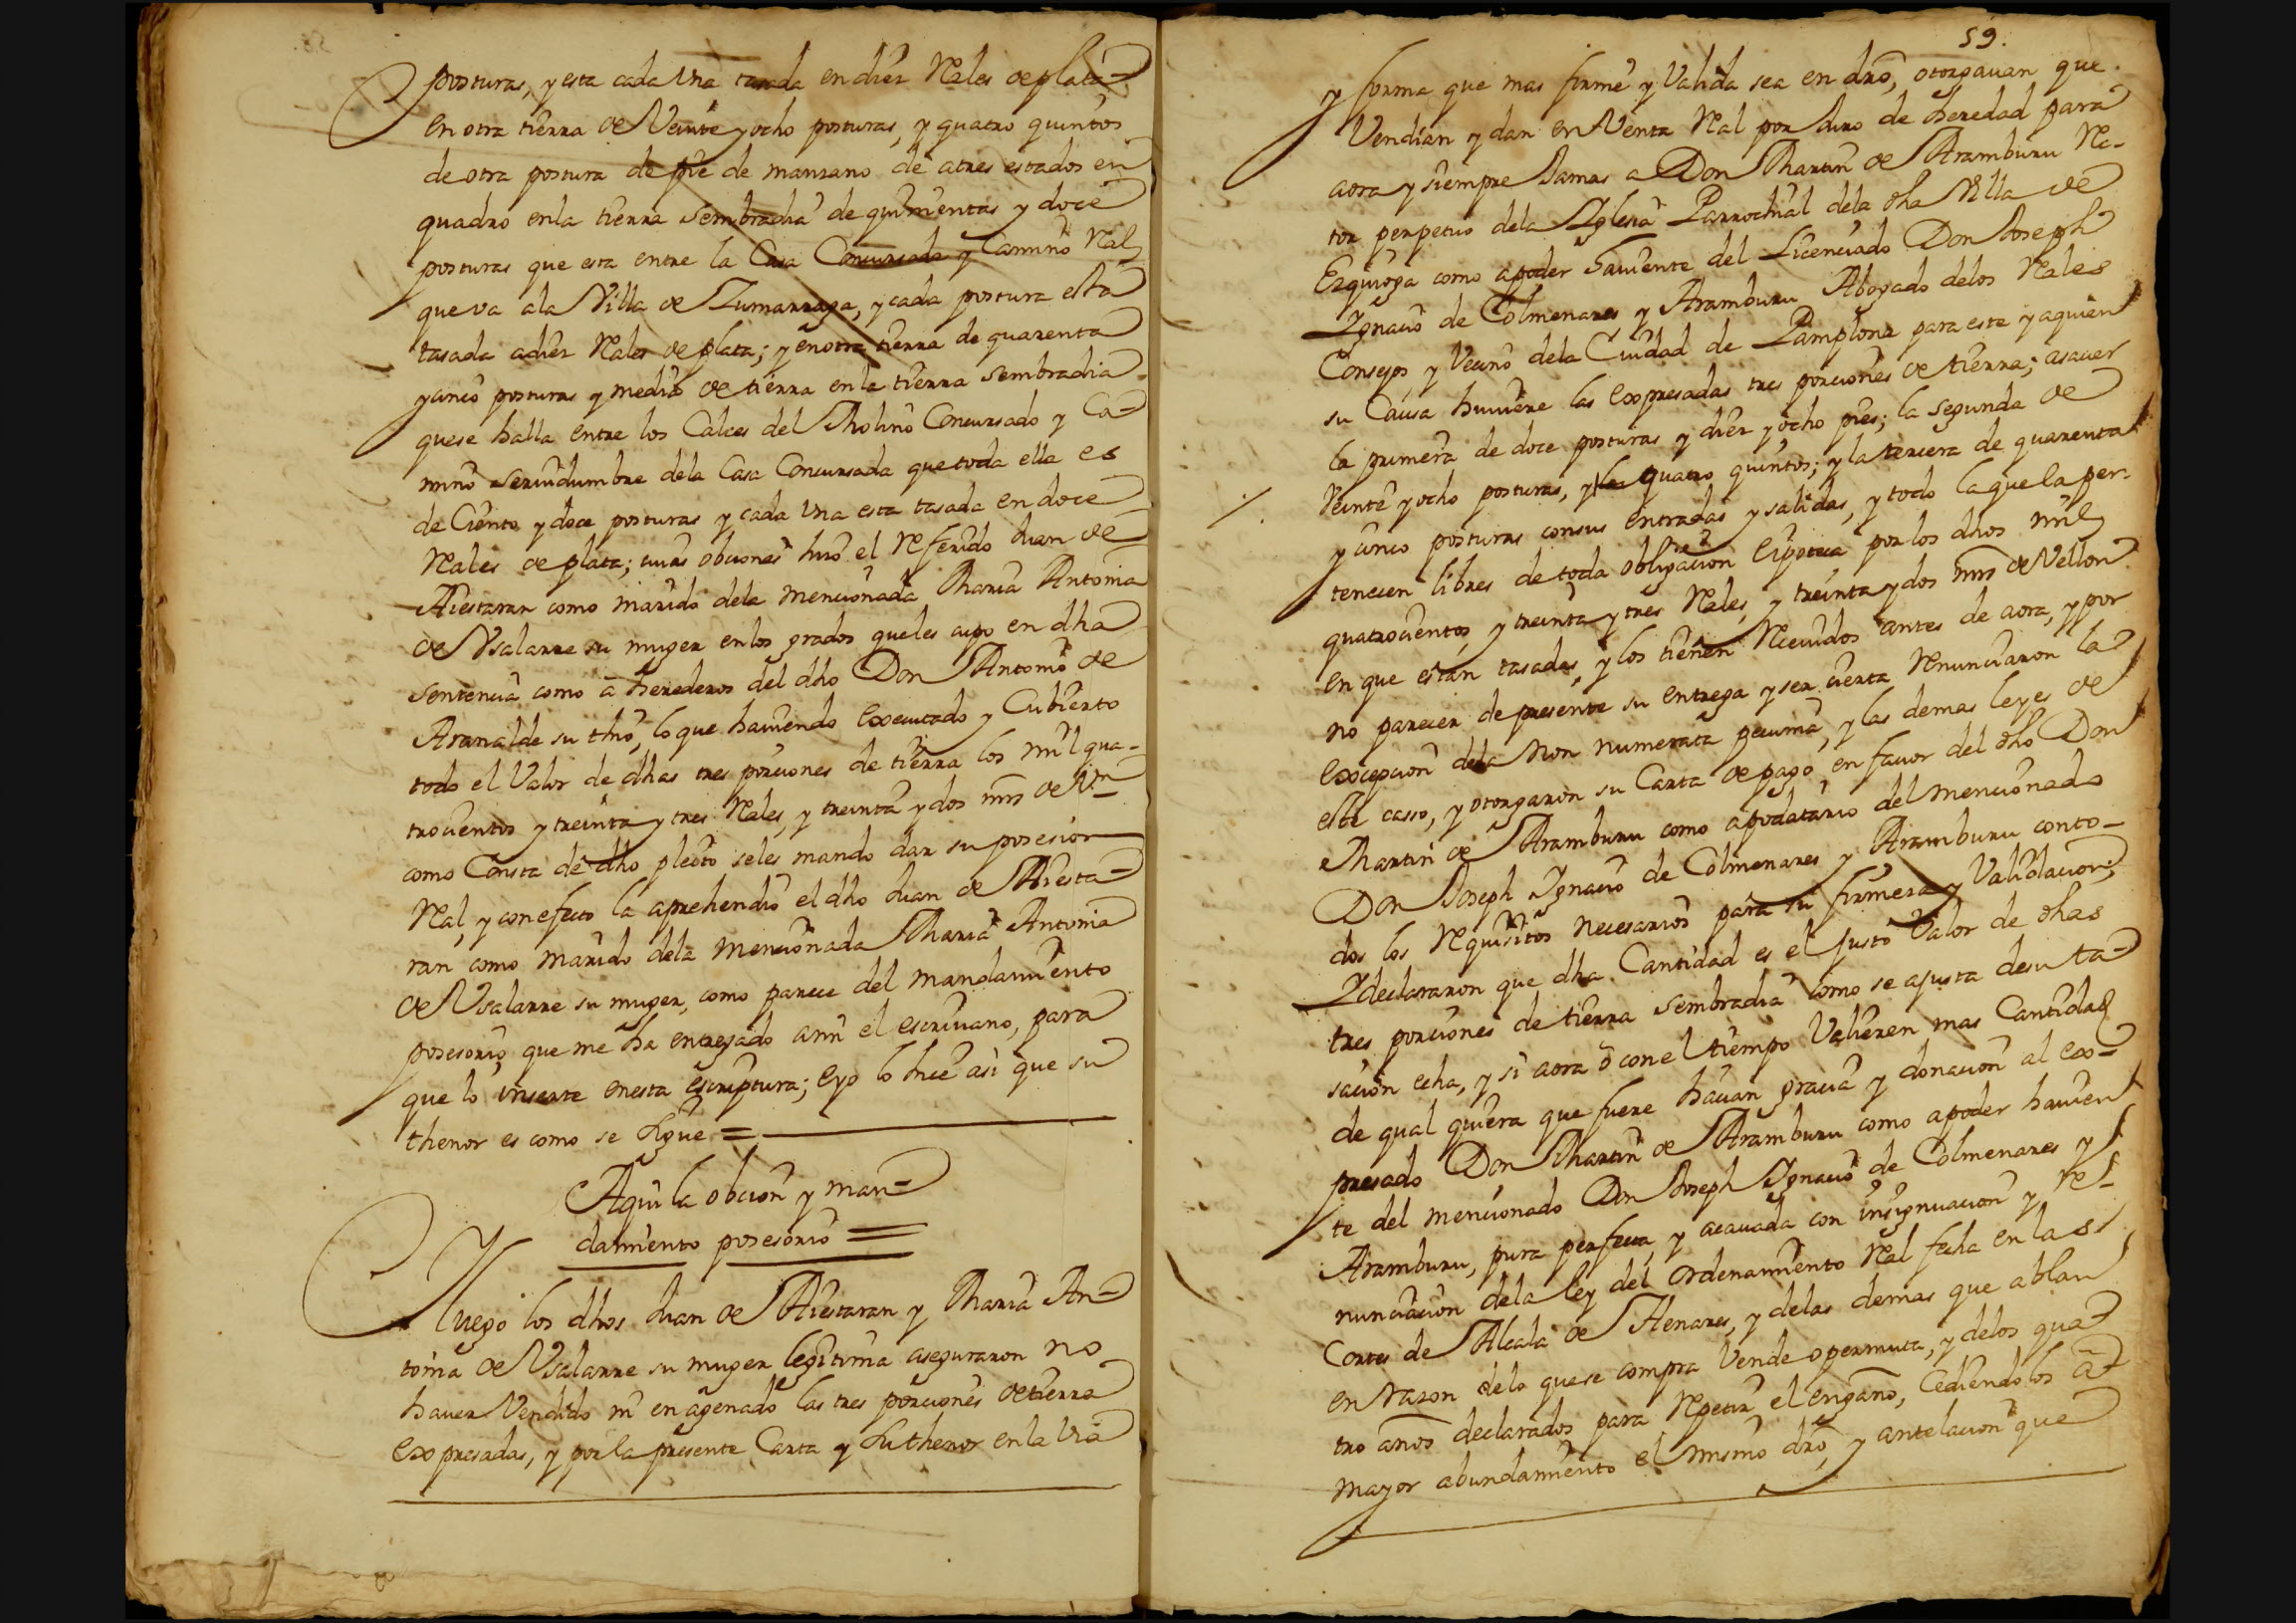 posturas, y esta cada Vna tasada en diez Rales de plata
en otra tierra de Veinte y ocho posturas, y quatro quintos
de otra postura de pie de manzano de atres estados en
quadro enla tierra sembradia de quinientas y doce
posturas que esta entre la Casa Concursada y Camino Ral
que va ala Villa de Zumarraga, y cada postura està
tasada adiez Rales de plata; y en otra tierra de quarenta
y cinco posturas y media de tierra enla tierra sembradia
que se halla entre los Calces del Molino Concursado y Ca-
mino servidumbre dela Casa Concursada que toda ella es
de Ciento y doce posturas y cada Vna esta tasada en doce
Rales de plata; cuias obciones hizo el Referido Juan de
Aiestaran como marido dela mencionada Maria Antonia
de Vsalarre su muger enlos grados que les cupo en dha
Sentencia como â herederos del dho Don Antonio de
Aranalde su thio, lo que haviendo executado y Cubierto
todo el Valor de dhas tres porciones de tierra los mil qua-
trocientos y treinta y tres Rales, y treinta y dos mrs de Vn
como Consta de dho pleito seles mandò dar su posesion
Ral, y con efecto la aprehendio el dho Juan de Aiesta-
ran como marido dela mencionada Maria Antonia
de Vsalarre su muger, como parece del mandamiento
posesorio que me ha entregado ami el escrivano, para
que lo inserte en esta escriptura; e yo lo hice asi que su
thenor es como se sigue =
Aqui la obcion y man-
damiento posesorio =
Y luego los dhos Juan de Aiestaran y Maria An-
tonia de Vsalarre su muger legitima aseguraron no
haver Vendido ni enagenado las tres porciones de tierra
expresadas, y por la presente Carta y su thenor en la via
59.
y forma que mas firme y Valida sea en dro, otorgavan que
Vendian y dan en Venta Ral por Juro de heredad para
aora y siempre Jamas a Don Martin de Aramburu Re-
tor perpetuo dela Iglesia Parrochial dela dha Villa de
Ezquioga como apoder haviente del Licenciado Don Joseph
Ignacio de Colmenares y Aramburu Abogado delos Rales
Consejos, y Vecino dela Ciudad de Pamplona para este y aquien
su Causa huviere las expresadas tres porciones de tierra; asaver
la primera de doce posturas y diez y ocho pies; la segunda de
Veinte y ocho posturas, y quatro quintos; y la tercera de quarenta
y cinco posturas consus entradas y salidas, y todo la que la per-
tenecen libres de toda obligacion e ipoteca por los dhos mil
quatrocientos, y treinta y tres Rales, y treinta y dos mrs de Vellon
en que estàn tasadas, y los tienen Recividos antes de aora, y por
no parecer de presente su entrega y ser cierta Renunciaron la
excepcion dela Non numerata pecunia, y las demas leyes de
este casso, y otorgaron su Carta de pago en favor del dho Don
Martin de Aramburu como apodatario del mencionado
Don Joseph Ignacio de Colmenares y Aramburu conto-
dos los Requisitos necesarios para su firmeza y Validacion;
I declararon que dha Cantidad es el justo Valor de dhas
tres porciones de tierra sembradia como se ajusta desu ta-
sacion echa, y si aora ô con el tiempo Valieren mas Cantidad
de qual quiera que fuere hacian gracia y donacion al ex-
presado Don Martin de Aramburu como apoder havien
te del mencionado Don Joseph Ignacio de Colmenares y
Aramburu, pura perfecta, y acavada con insignuacion y re-
nunciacion dela ley del Ordenamiento Ral fecha en las
Cortes de Alcala de Henares, y delas demas que ablan
en razon delo que se compra Vende o permuta, y delos qua-
tro años declarados para Repetir el engaño, Cediendolos â
mayor abundamiento el mismo dro, y antelacion que